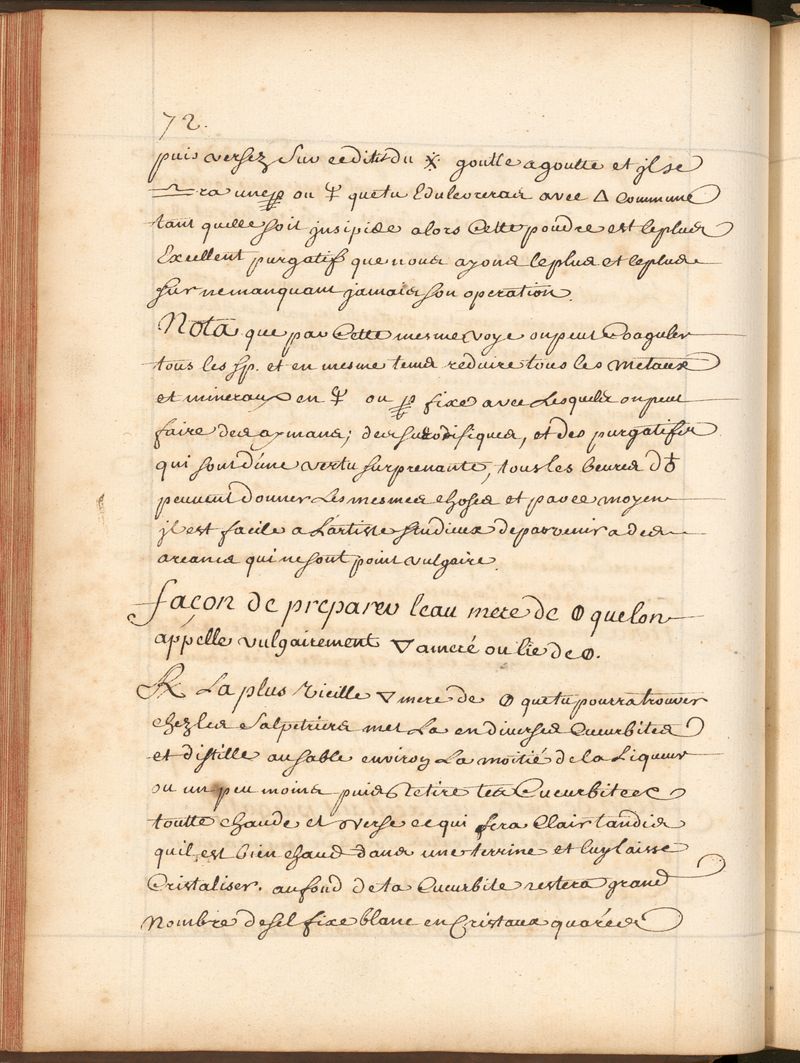 72.
puis versez sur ce dit du ⁜ goutte a goutte et jl se
♎ra une ou 🜍 que tu Edulcorerais avec △ commune
tant quelle soit jnsipide alors Cette poudre est le plus
Excellent purgatif que nous ayons le plus et le plus
sur ne manquant jamais son operation.
Nota que par Cette mesme voye on peut Coaguler
tous les sp. et en mesme tems reduire tous les metaux
et mineraux en ou fixe avec Lesquels on peut
faire des aymans; des sudorifiques, et des purgatifs
qui sont d'une vertu surprenante, tous les beures d'♁
peuvent donner Les mesmes choses et par ce moyen
jl est facile a L'artiste studieux de parvenir a des
arcanes qui ne sont point vulgaire.
façon de preparer leau mere de 🜕 que lon
appelle vulgairement ▽ ameré ou lie de 🜕.
℞ La plus vieille ▽ mere de 🜕 que tu pourra trouver
chez les salpetriers met La en diverses Cucurbites
et distille au sable environ La moitié de la Liqueur
ou un peu moins puis Retire tes Cucurbites
toutte chaude et verse ce qui sera Clair tandis
qu'il est bien chaud dans une terrine et luy laisse
Cristaliser. au fond de ta Cucurbite restera grand
Nombre de sel fixe blanc en Cristaux quarées